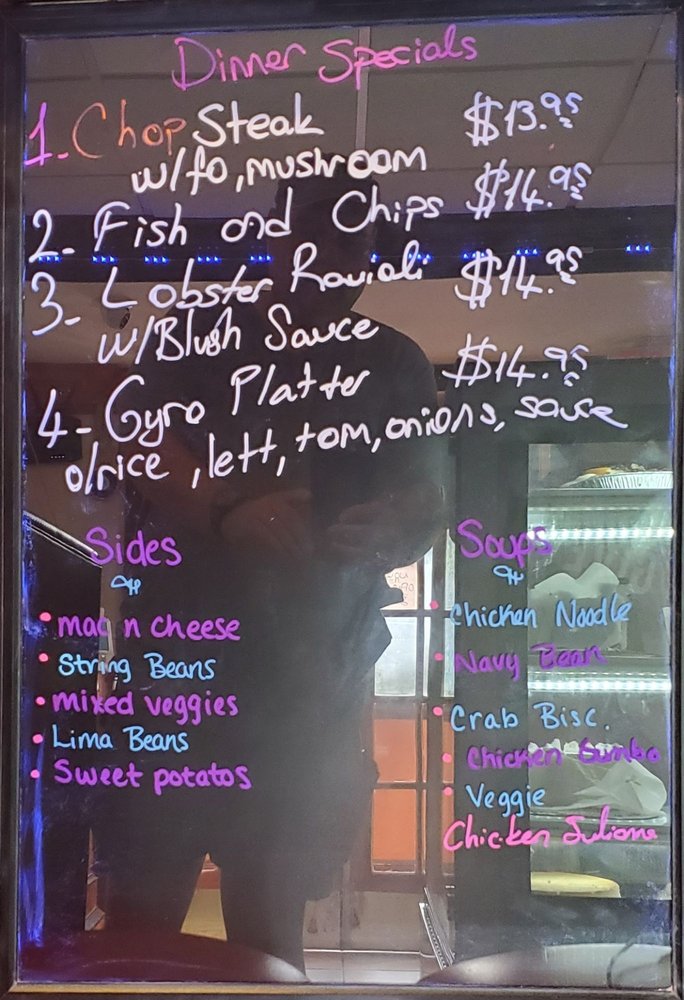 Dinner Specials
1. Chop Steak $13.95
w/fo, mushroom
2- Fish and Chips $14.95
3- Lobster Ravioli $14.95
w/Blush Sauce
4- Gyro Platter $14.95
o/rice, lett, tom, onions, sauce
Sides
• mac n cheese
• String Beans
• mixed veggies
• Lima Beans
• Sweet potatos
Soups
• Chicken Noodle
• Navy Bean
• Crab Bisc.
• Chicken Gumbo
• Veggie
Chicken Juliane